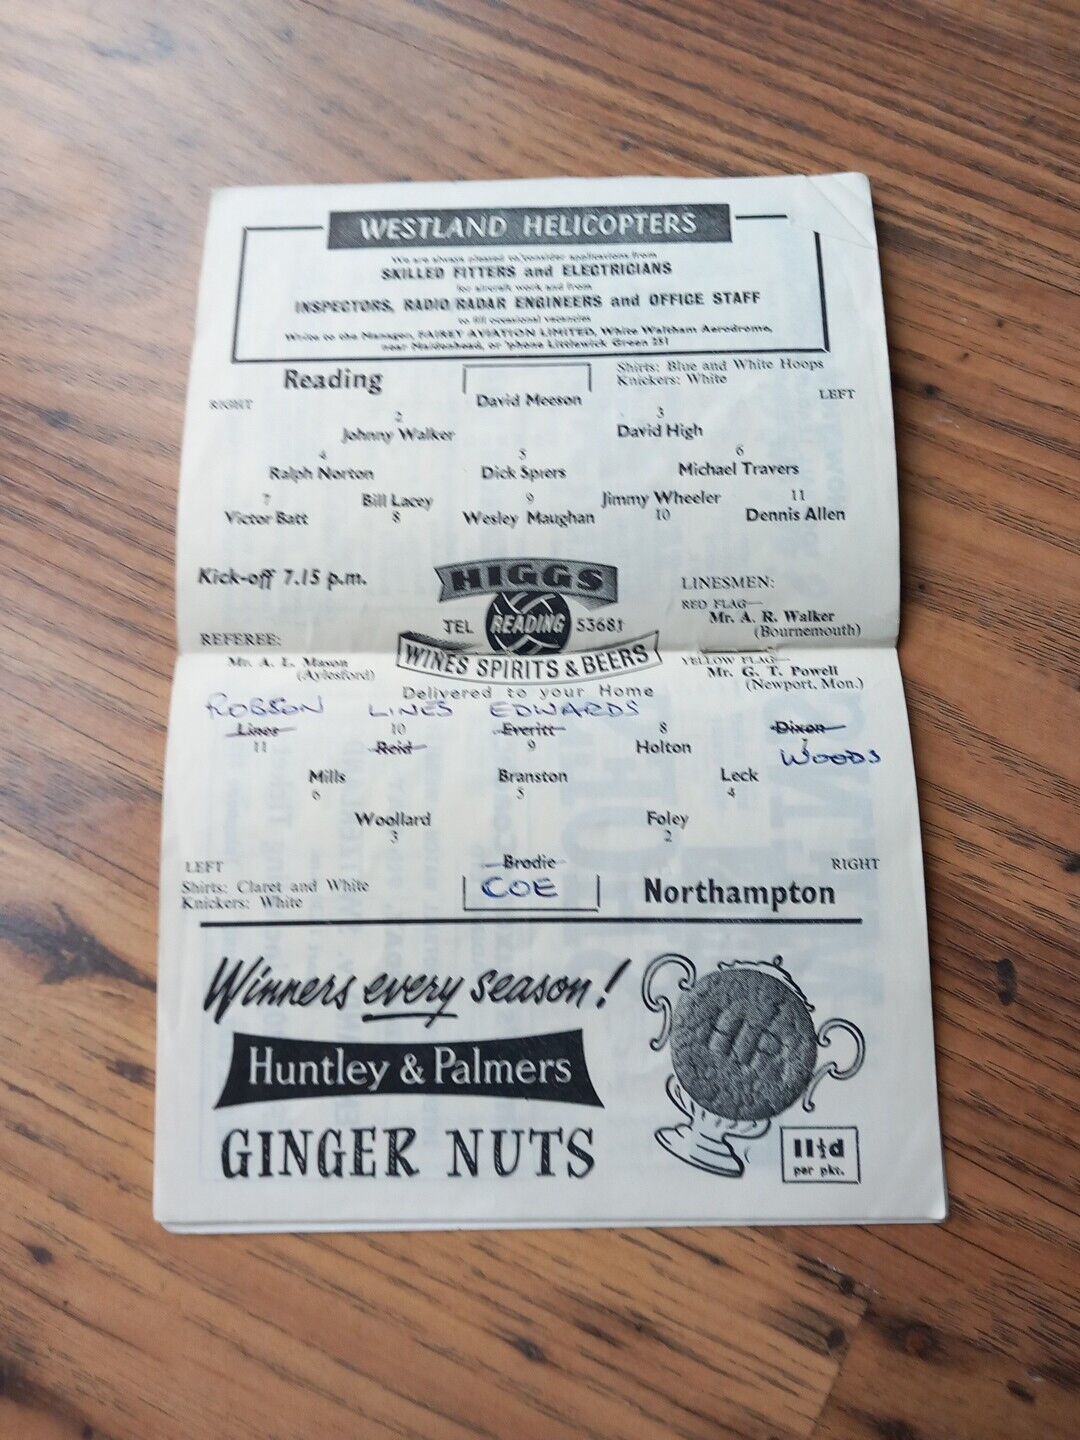 WESTLAND HELICOPTERS
We are always pleased to consider applications from
SKILLED FITTERS and ELECTRICIANS
for aircraft work and from
INSPECTORS, RADIO/RADAR ENGINEERS and OFFICE STAFF
to fill occasional vacancies
Write to the Manager, FAIREY AVIATION LIMITED, White Waltham Aerodrome,
near Maidenhead, or 'phone Littlewick Green 251
Reading
Shirts: Blue and White Hoops
Knickers: White
RIGHT
David Meeson
LEFT
2
Johnny Walker
3
David High
4
Ralph Norton
5
Dick Spiers
6
Michael Travers
7
Victor Batt
Bill Lacey
8
9
Wesley Maughan
Jimmy Wheeler
10
11
Dennis Allen
Kick-off 7.15 p.m.
HIGGS
READING
TEL 53681
WINES SPIRITS & BEERS
Delivered to your Home
LINESMEN:
RED FLAG—
Mr. A. R. Walker
(Bournemouth)
REFEREE:
Mr. A. L. Mason
(Aylesford)
YELLOW FLAG—
Mr. G. T. Powell
(Newport, Mon.)
ROBSON LINES EDWARDS
Lines
11
10
Reid
Everitt
9
8
Holton
Dixon
7
WOODS
Mills
6
Branston
5
Leck
4
Woollard
3
Foley
2
Brodie
COE
LEFT
Shirts: Claret and White
Knickers: White
RIGHT
Northampton
Winners every season!
Huntley & Palmers
GINGER NUTS
H&P
11½d
per pkt.